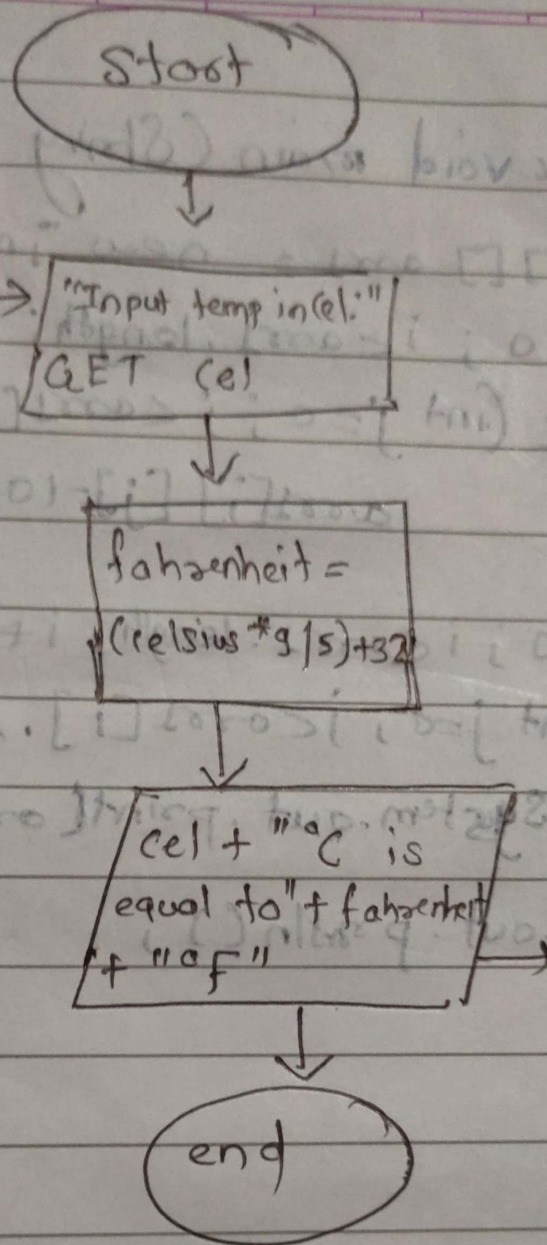 Start
"Input temp in Cel:"
GET Cel
fahrenheit =
(celsius * 9/5)+32
Cel + "°C is
equal to" + fahrenheit
+ "°F"
end